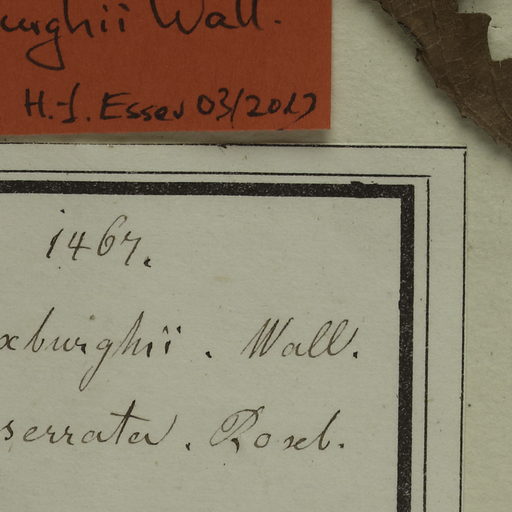 urghii Wall.
H.-J. Esser 03/2017
1467.
xburghii. Wall.
serrata. Roxb.